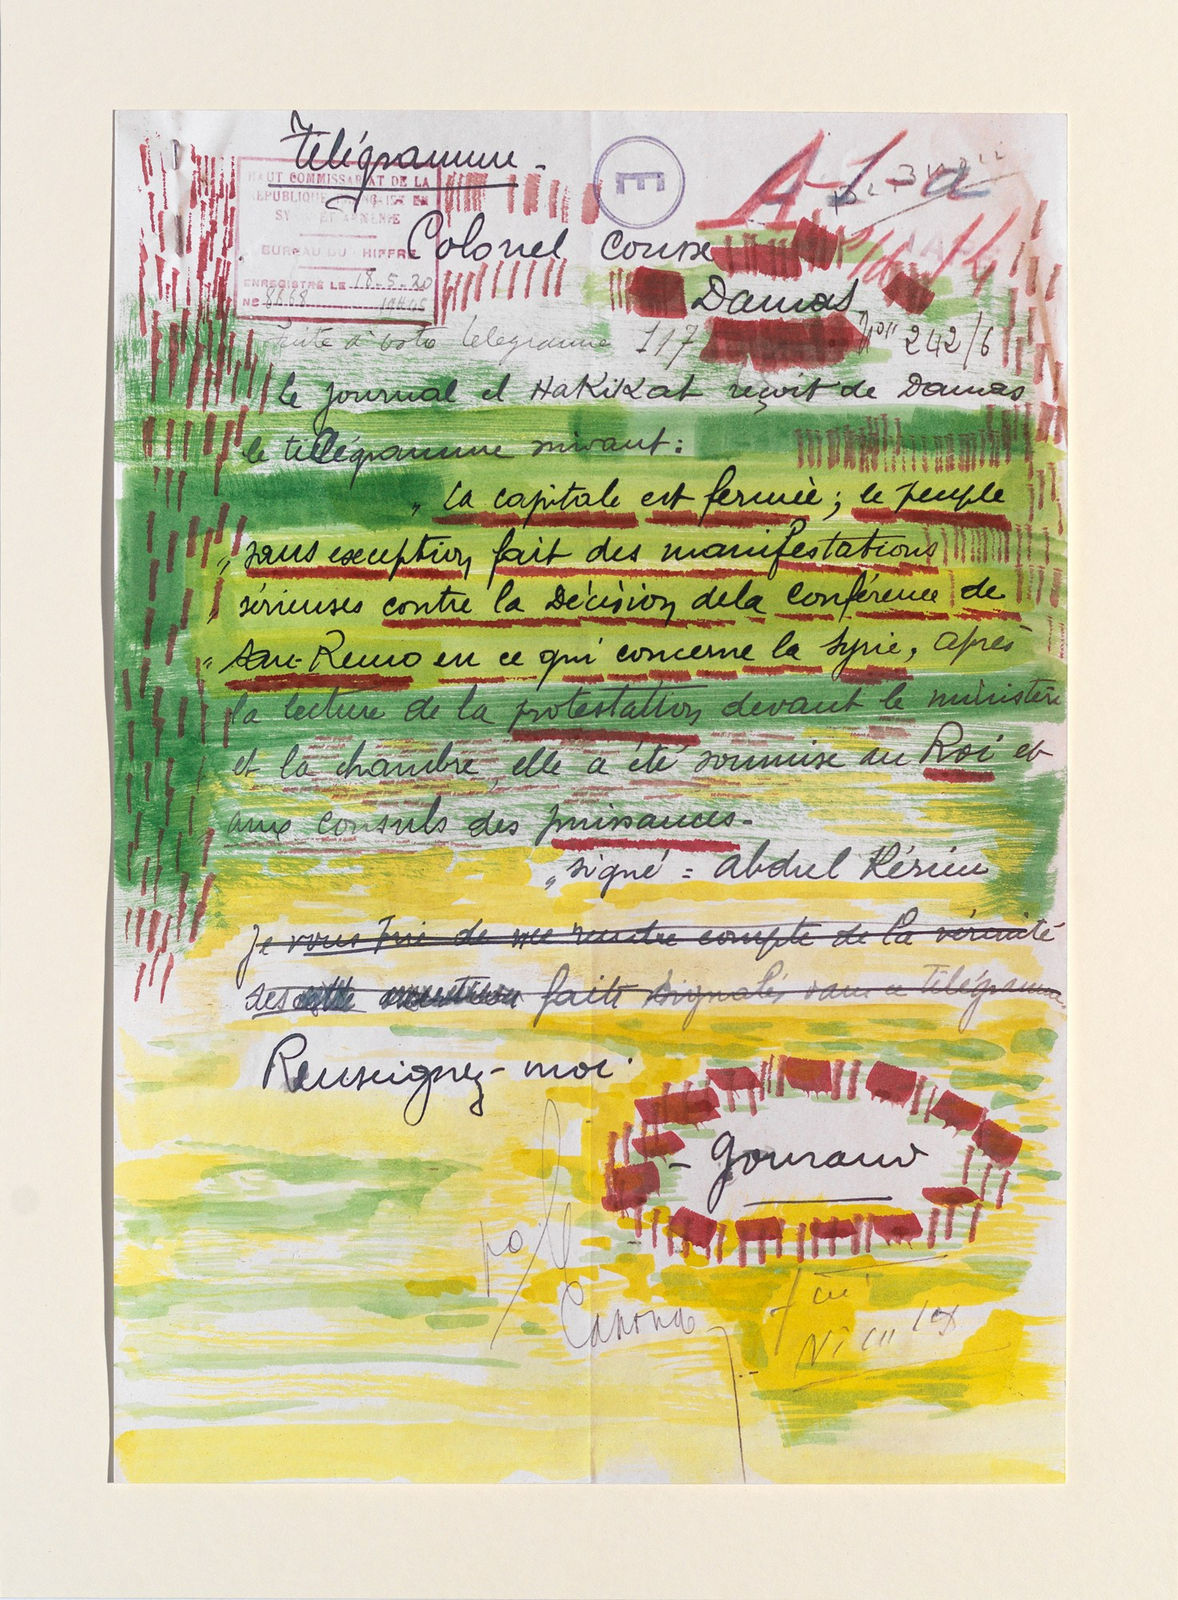 Télégramme -
E
A-1-a
HAUT COMMISSARIAT DE LA
REPUBLIQUE FRANÇAISE EN
BUREAU DU CHIFFRE
ENREGISTRÉ LE 18-5-20
No 8868
Colonel Cousse
Damas
Suite à votre télégramme 117 No 242/6
le journal el Hakikat reçoit de Damas
le télégramme suivant :
„ La capitale est fermée ; le peuple
„ sans exception fait des manifestations
„ sérieuses contre la Décision de la Conférence de
„ San-Remo en ce qui concerne la Syrie, après
la lecture de la protestation devant le ministère
et la chambre, elle a été soumise au Roi et
aux consuls des puissances -
„ signé = Abdul Kérim
Je vous prie de me rendre compte de la véracité
des faits signalés dans ce télégramme.
Renseignez-moi.
- Gouraud